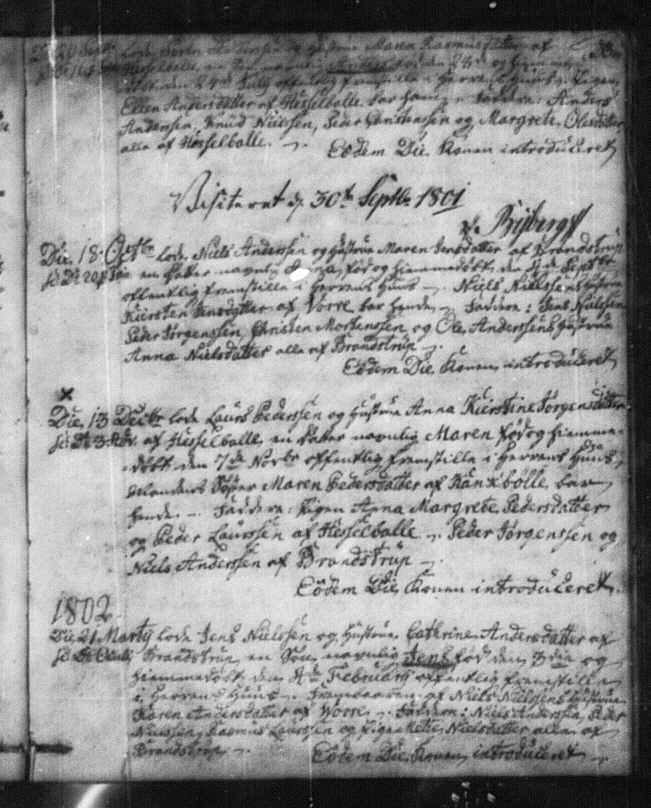 lode Søren Andersen og Hustrue Maren Rasmusdatter af
Hesselballe, en
Ellen Andersdatter af Hesselballe bar ham. Faddere: Anders
Andersen, Knud Nielsen, Peder Christensen og Margrete Olesdatter
alle af Hesselballe.
Eodem Die Konen introduceret
Visiterat d. 30te Septbr 1801
Die 18 Octbr lode Niels Andersen og Hustrue Maren Jensdatter af Brandstrup
en Datter navnlig født og hiemmedøbt den Septbr
offentlig fremstille i Herrens Huus Niels Nielsens Hustrue
Kiersten Jensdatter af Vorre bar hende Faddere: Jens Nielsen
Peder Jørgenssen, Christen Mortenssen og Ole Anderssens Hustrue
Anna Nielsdatter alle af Brandstrup
Eodem Die Konen introduceret
Die 13 Decbr lode Laurs Pederssen og Hustrue Anna Kierstine Jørgensdatter
af Hesselballe, en Datter navnlig Maren født og hiemme-
døbt den 7de Novbr offentlig fremstille i Herrens Huus,
Mandens Søster Maren Pedersdatter af Kankbølle bar
hende. Faddere: Pigen Anna Margrete Pedersdatter
og Peder Laurssen af Hesselballe Peder Jørgenssen og
Niels Anderssen af Brandstrup
Eodem Die Konen introduceret.
1802
Die 21 Martij lode Jens Nielssen og Hustrue Cathrine Andersdatter af
Brandstrup en Søn navnlig Jens født den 3die og
hiemmedøbt den Februarij offentlig fremstille
i Herrens Huus Frembaaren af Niels Nielsens Hustrue
Karen Andersdatter af Vorre Faddere: Niels Anderssen, Peder
Nielssen, Rasmus Laurssen og Pigen Mette Nielsdatter alle af
Brandstrup
Eodem Die Konen introduceret